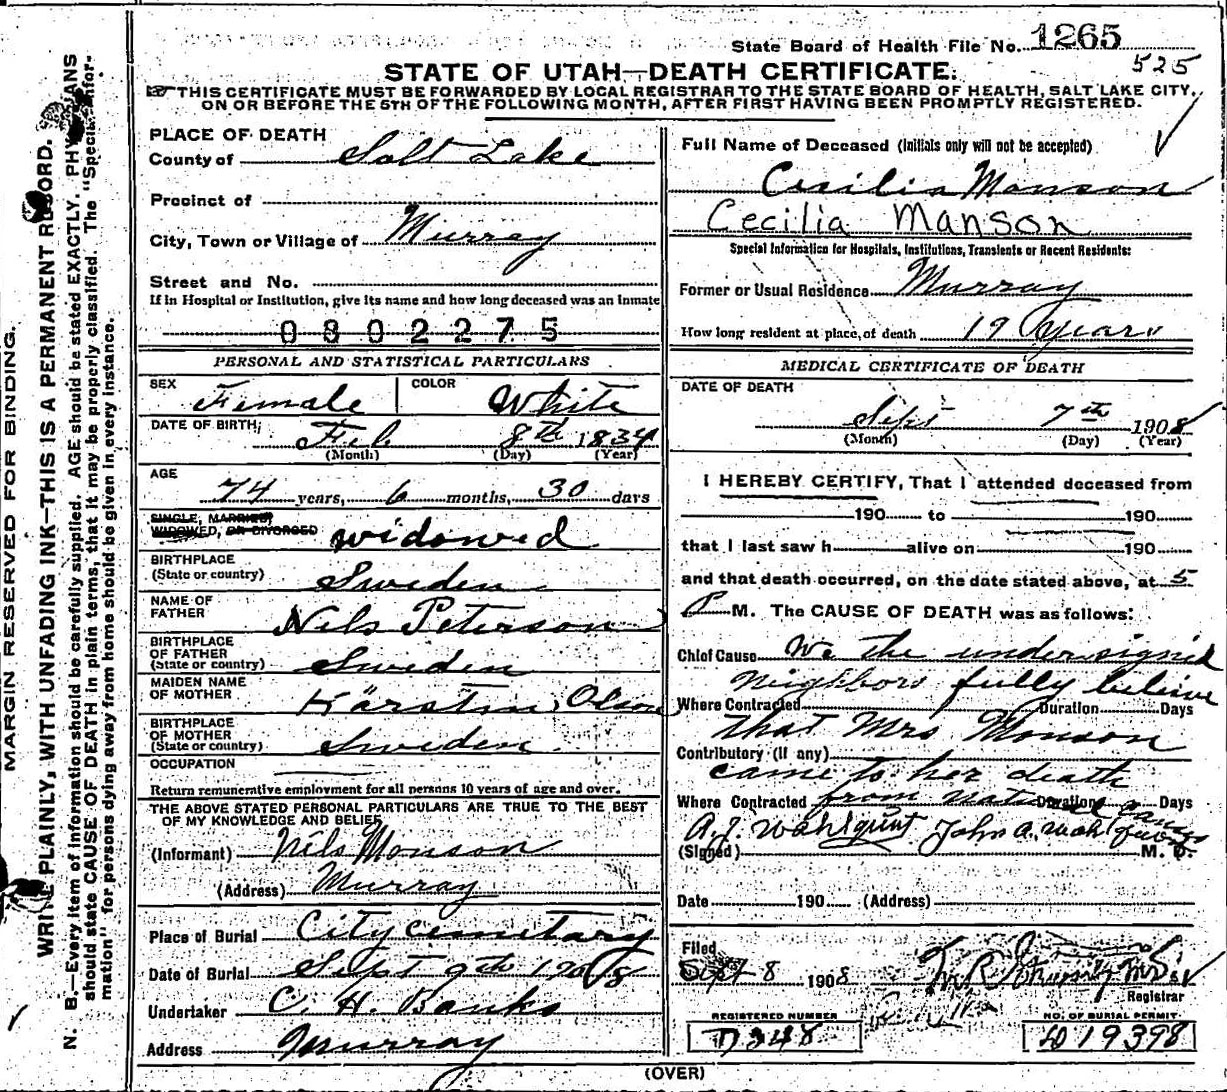 State Board of Health File No. 1265
525
STATE OF UTAH—DEATH CERTIFICATE.
THIS CERTIFICATE MUST BE FORWARDED BY LOCAL REGISTRAR TO THE STATE BOARD OF HEALTH, SALT LAKE CITY,
ON OR BEFORE THE 5TH OF THE FOLLOWING MONTH, AFTER FIRST HAVING BEEN PROMPTLY REGISTERED.
MARGIN RESERVED FOR BINDING.
WRITE PLAINLY, WITH UNFADING INK—THIS IS A PERMANENT RECORD.
N. B.—Every item of information should be carefully supplied. AGE should be stated EXACTLY. PHYSICIANS
should state CAUSE OF DEATH in plain terms, that it may be properly classified. The "Special Infor-
mation" for persons dying away from home should be given in every instance.
PLACE OF DEATH
County of Salt Lake
Precinct of
City, Town or Village of Murray
Street and No.
If in Hospital or Institution, give its name and how long deceased was an inmate
0802275
PERSONAL AND STATISTICAL PARTICULARS
SEX Female COLOR White
DATE OF BIRTH; Feb 8th 1834
(Month) (Day) (Year)
AGE
74 years, 6 months, 30 days
SINGLE, MARRIED,
WIDOWED, OR DIVORCED widowed
BIRTHPLACE
(State or country) Sweden
NAME OF
FATHER Nils Peterson
BIRTHPLACE
OF FATHER
(State or country) Sweden
MAIDEN NAME
OF MOTHER Kärstin Olson
BIRTHPLACE
OF MOTHER
(State or country) Sweden
OCCUPATION
Return remunerative employment for all persons 10 years of age and over.
THE ABOVE STATED PERSONAL PARTICULARS ARE TRUE TO THE BEST
OF MY KNOWLEDGE AND BELIEF
(Informant) Nils Monson
(Address) Murray
Place of Burial City cemetary
Date of Burial Sept 9th 1908
Undertaker C. H. Banks
Address Murray
Full Name of Deceased (Initials only will not be accepted)
Cecilia Manson
Cecilia Manson
Special Information for Hospitals, Institutions, Transients or Recent Residents:
Former or Usual Residence Murray
How long resident at place of death 19 years
MEDICAL CERTIFICATE OF DEATH
DATE OF DEATH
Sept 7th 1908
(Month) (Day) (Year)
I HEREBY CERTIFY, That I attended deceased from
190 to 190
that I last saw h alive on 190
and that death occurred, on the date stated above, at 5
P M. The CAUSE OF DEATH was as follows:
Chief Cause We the undersigned
neighbors fully believe
Where Contracted Duration Days
that Mrs Monson
Contributory (if any)
came to her death
Where Contracted from natural causes Duration Days
A. J. Wahlquist John A. Wahlquist
(Signed) M. D.
Date 190 (Address)
Filed
Sept 8 1908
Registrar
REGISTERED NUMBER
D248
NO. OF BURIAL PERMIT
D19398
(OVER)